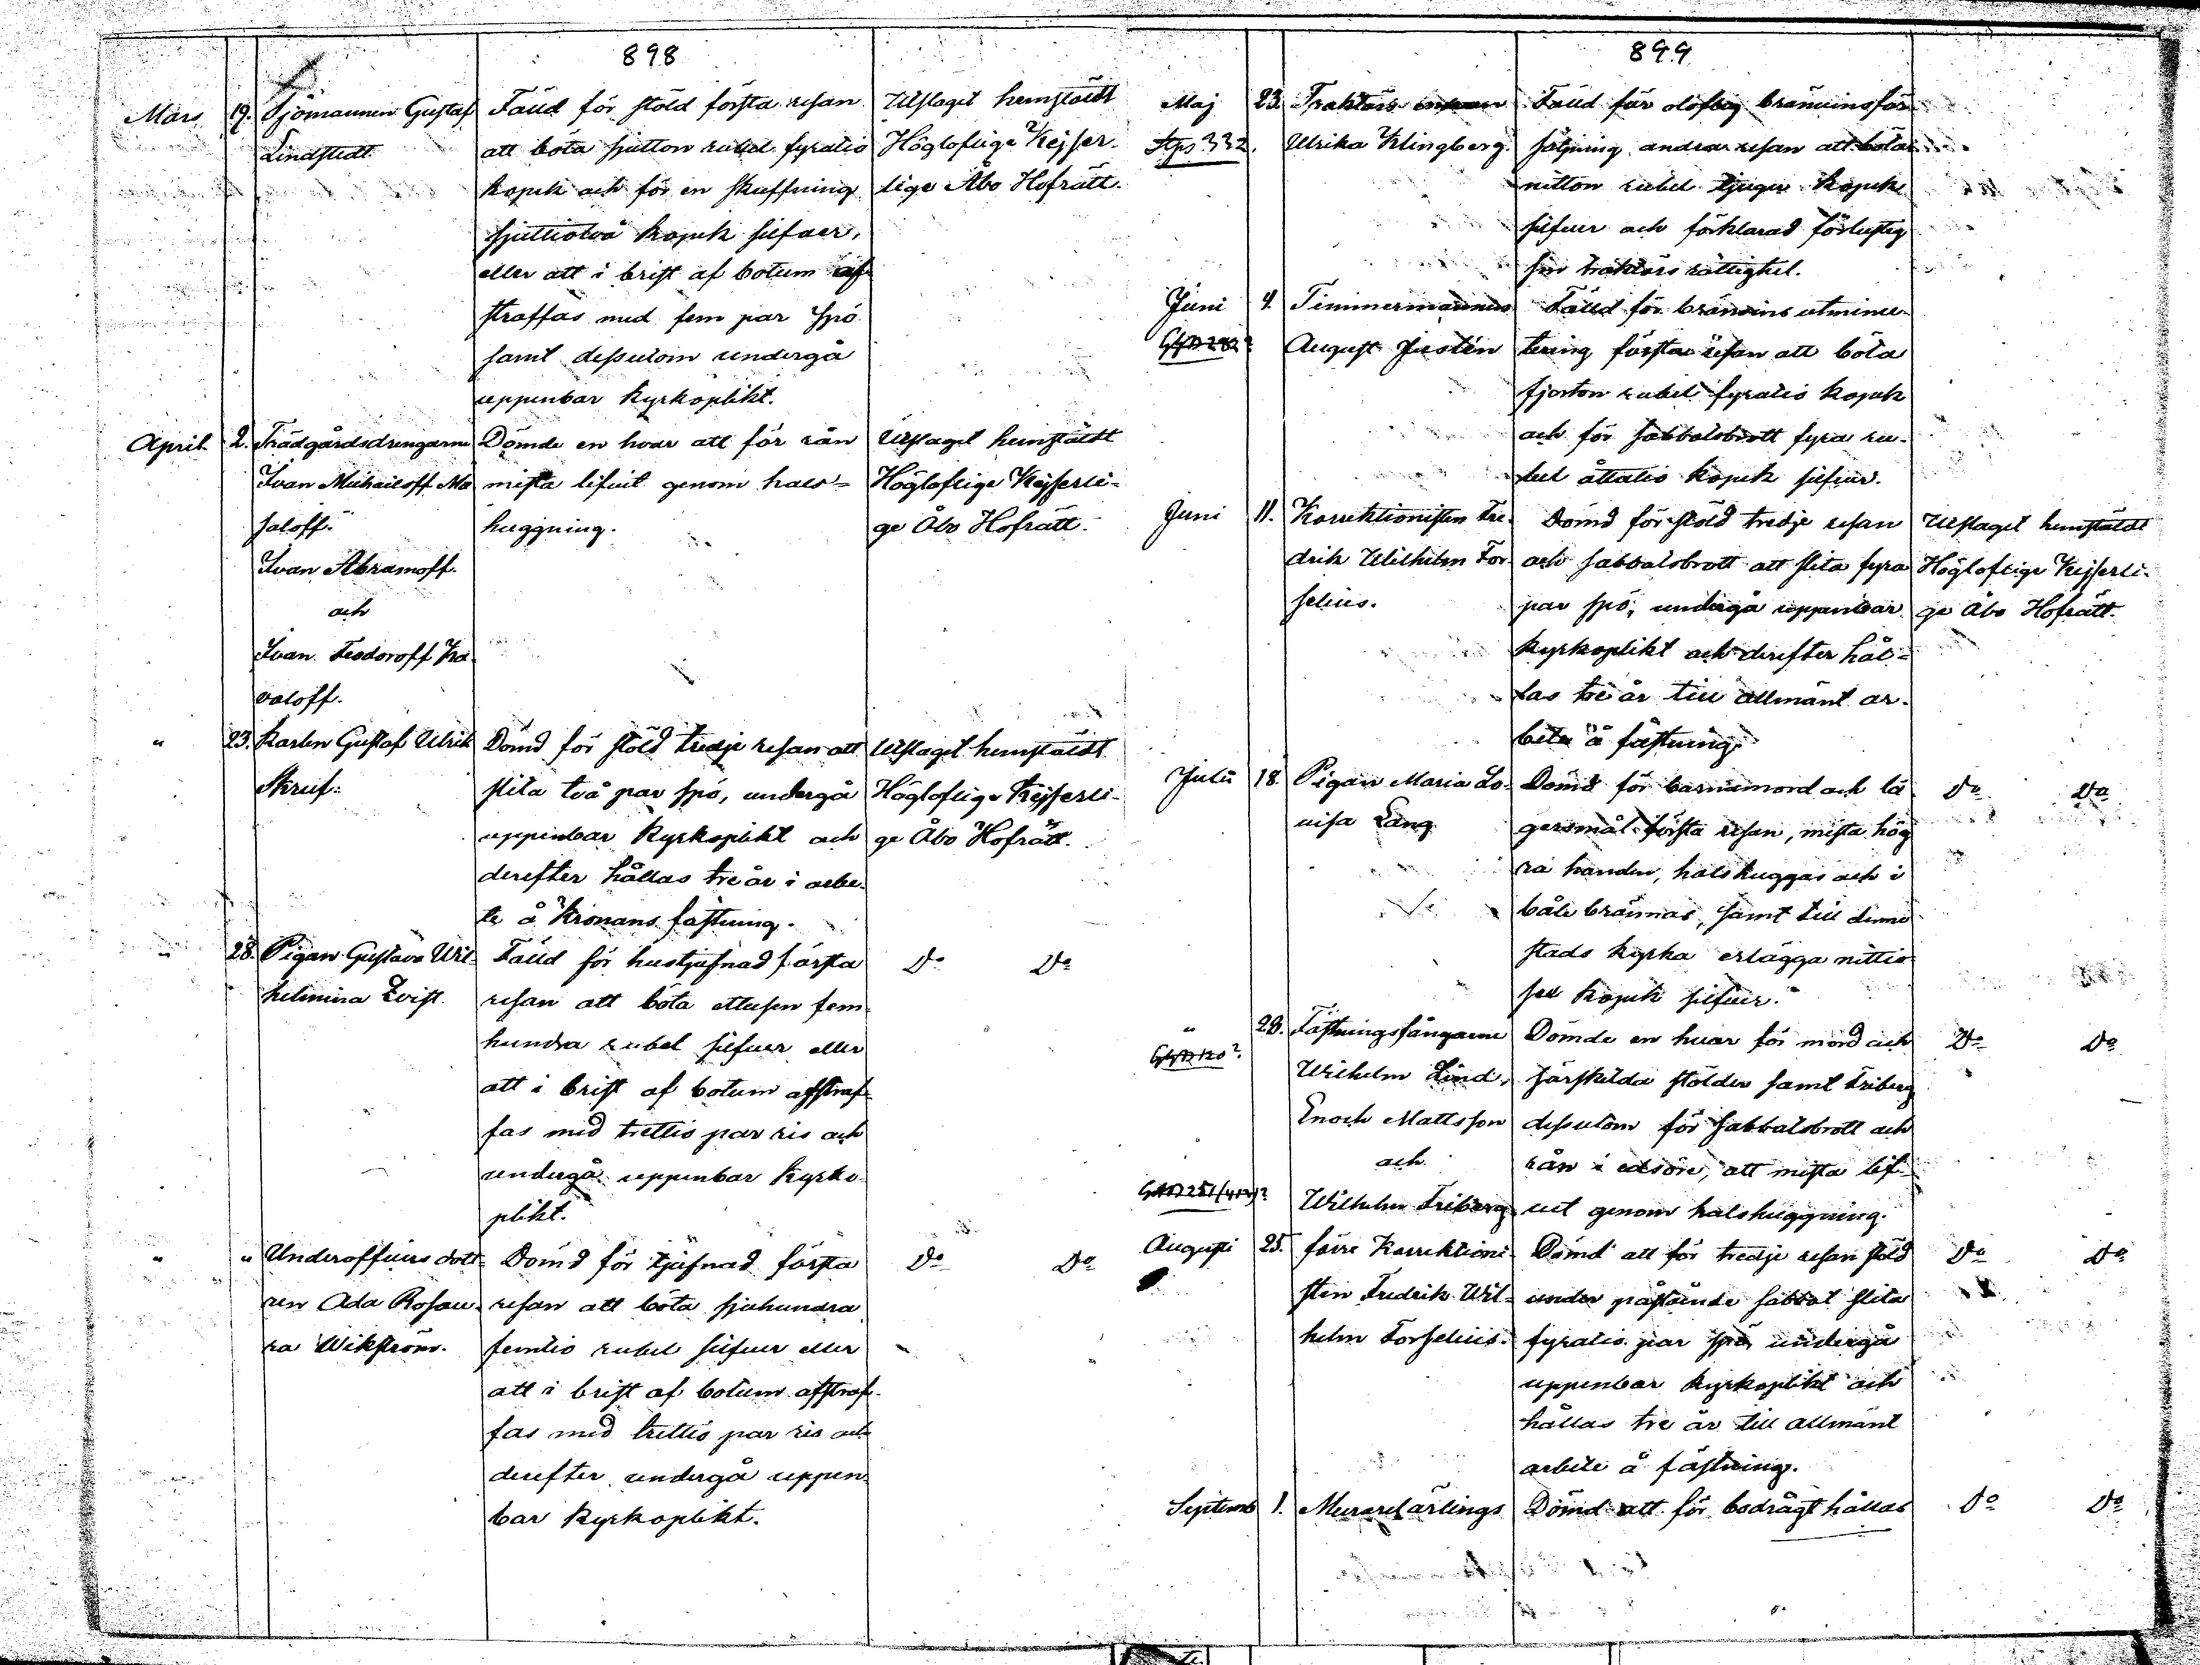 898
Mars 19. Sjömannen Gustaf
Lindstedt
Fälld för stöld första resan
att böta sjutton rubel fyratio
kopek och för en skuffning
sjuttiotvå kopek silfver,
eller att i brist af botum af
straffas med fem par spö
samt dessutom undergå
uppenbar kyrkoplikt.
Utslaget hemstäldt
Högloflige Kejser-
lige Åbo Hofrätt.
April 2. Trädgårdsdrengarne
Ivan Michailoff Ma
saloff.
Ivan Abramoff.
och
Ivan Feodoroff Ka
valoff.
Dömde en hvar att för rån
mista lifvit genom hals-
huggning.
Utslaget hemstäldt
Högloflige Kejserli-
ge Åbo Hofrätt.
" 23. Karlen Gustaf Ulrik
Skruf:
Dömd för stöld tredje resan att
slita två par spö, undergå
uppenbar kyrkoplikt och
derefter hållas tre år i arbe-
te å Kronans fästning.
Utslaget hemstäldt
Högloflige Kejserli-
ge Åbo Hofrätt.
" 28. Pigan Gustava Wil-
helmina Qvist.
Fälld för hustjufnad första
resan att böta ettusen fem
hundra rubel silfver eller
att i brist af botum afstraf-
fas med trettio par ris och
undergå uppenbar kyrko-
plikt.
Do Do
" " Underofficers dott-
ren Ada Rosau-
ra Wikström.
Dömd för tjufnad första
resan att böta sjuhundra
femtio rubel silfver eller
att i brist af botum afstraf-
fas med trettio par ris och
derefter undergå uppen-
bar kyrkoplikt.
Do Do
899
Maj 23. Traktörs enkan
Stps 332. Ulrika Klingberg.
Fälld för oloflig bränvinsför
säljning andra resan att böta
nitton rubel tjugu kopek
silfver och förklarad förlustig
sin traktörs rättighet.
Juni 4. Timmermannen
August Justén
Fälld för bränvins utminu-
tering första resan att böta
fjorton rubel fyratio kopek
och för sabbatsbrott fyra ru-
bel åttatio kopek silfver.
Juni 11. Korrektionisten Fre-
drik Wilhelm For
selius.
Dömd för stöld tredje resan
och sabbatsbrott att slita fyra
par spö, undergå uppenbar
kyrkoplikt och derefter hål-
las tre år till allmänt ar-
bete å fästning.
Utslaget hemstäldt
Högloflige Kejserli-
ge Åbo Hofrätt.
Julii 18. Pigan Maria Lo-
uisa Lang
Dömd för barnamord och lä
gersmål första resan, mista hög
ra handen, halshuggas och i
båle brännas, samt till denne
stads kyrka erlägga nittio
sex kopek silfver.
Do Do
" 28. Fästningsfångarne
Wilhelm Lind,
Enoch Mattsson
och
Wilhelm Friberg
Dömde en hvar för mord och
särskilda stölder samt Friberg
dessutom för sabbatsbrott och
rån i edsöre, att mista lif-
vet genom halshuggning.
Do Do
Augusti 25. förre Korrektioni
sten Fredrik Wil-
helm Forselius.
Dömd att för tredje resan stöld
under påstående sabbat slita
fyratio par spö undergå
uppenbar kyrkoplikt och
hållas tre år till allmänt
arbete å fästning.
Do Do
Septemb 1. Murarelärlings
Dömd att för bodrägt hållas
Do Do